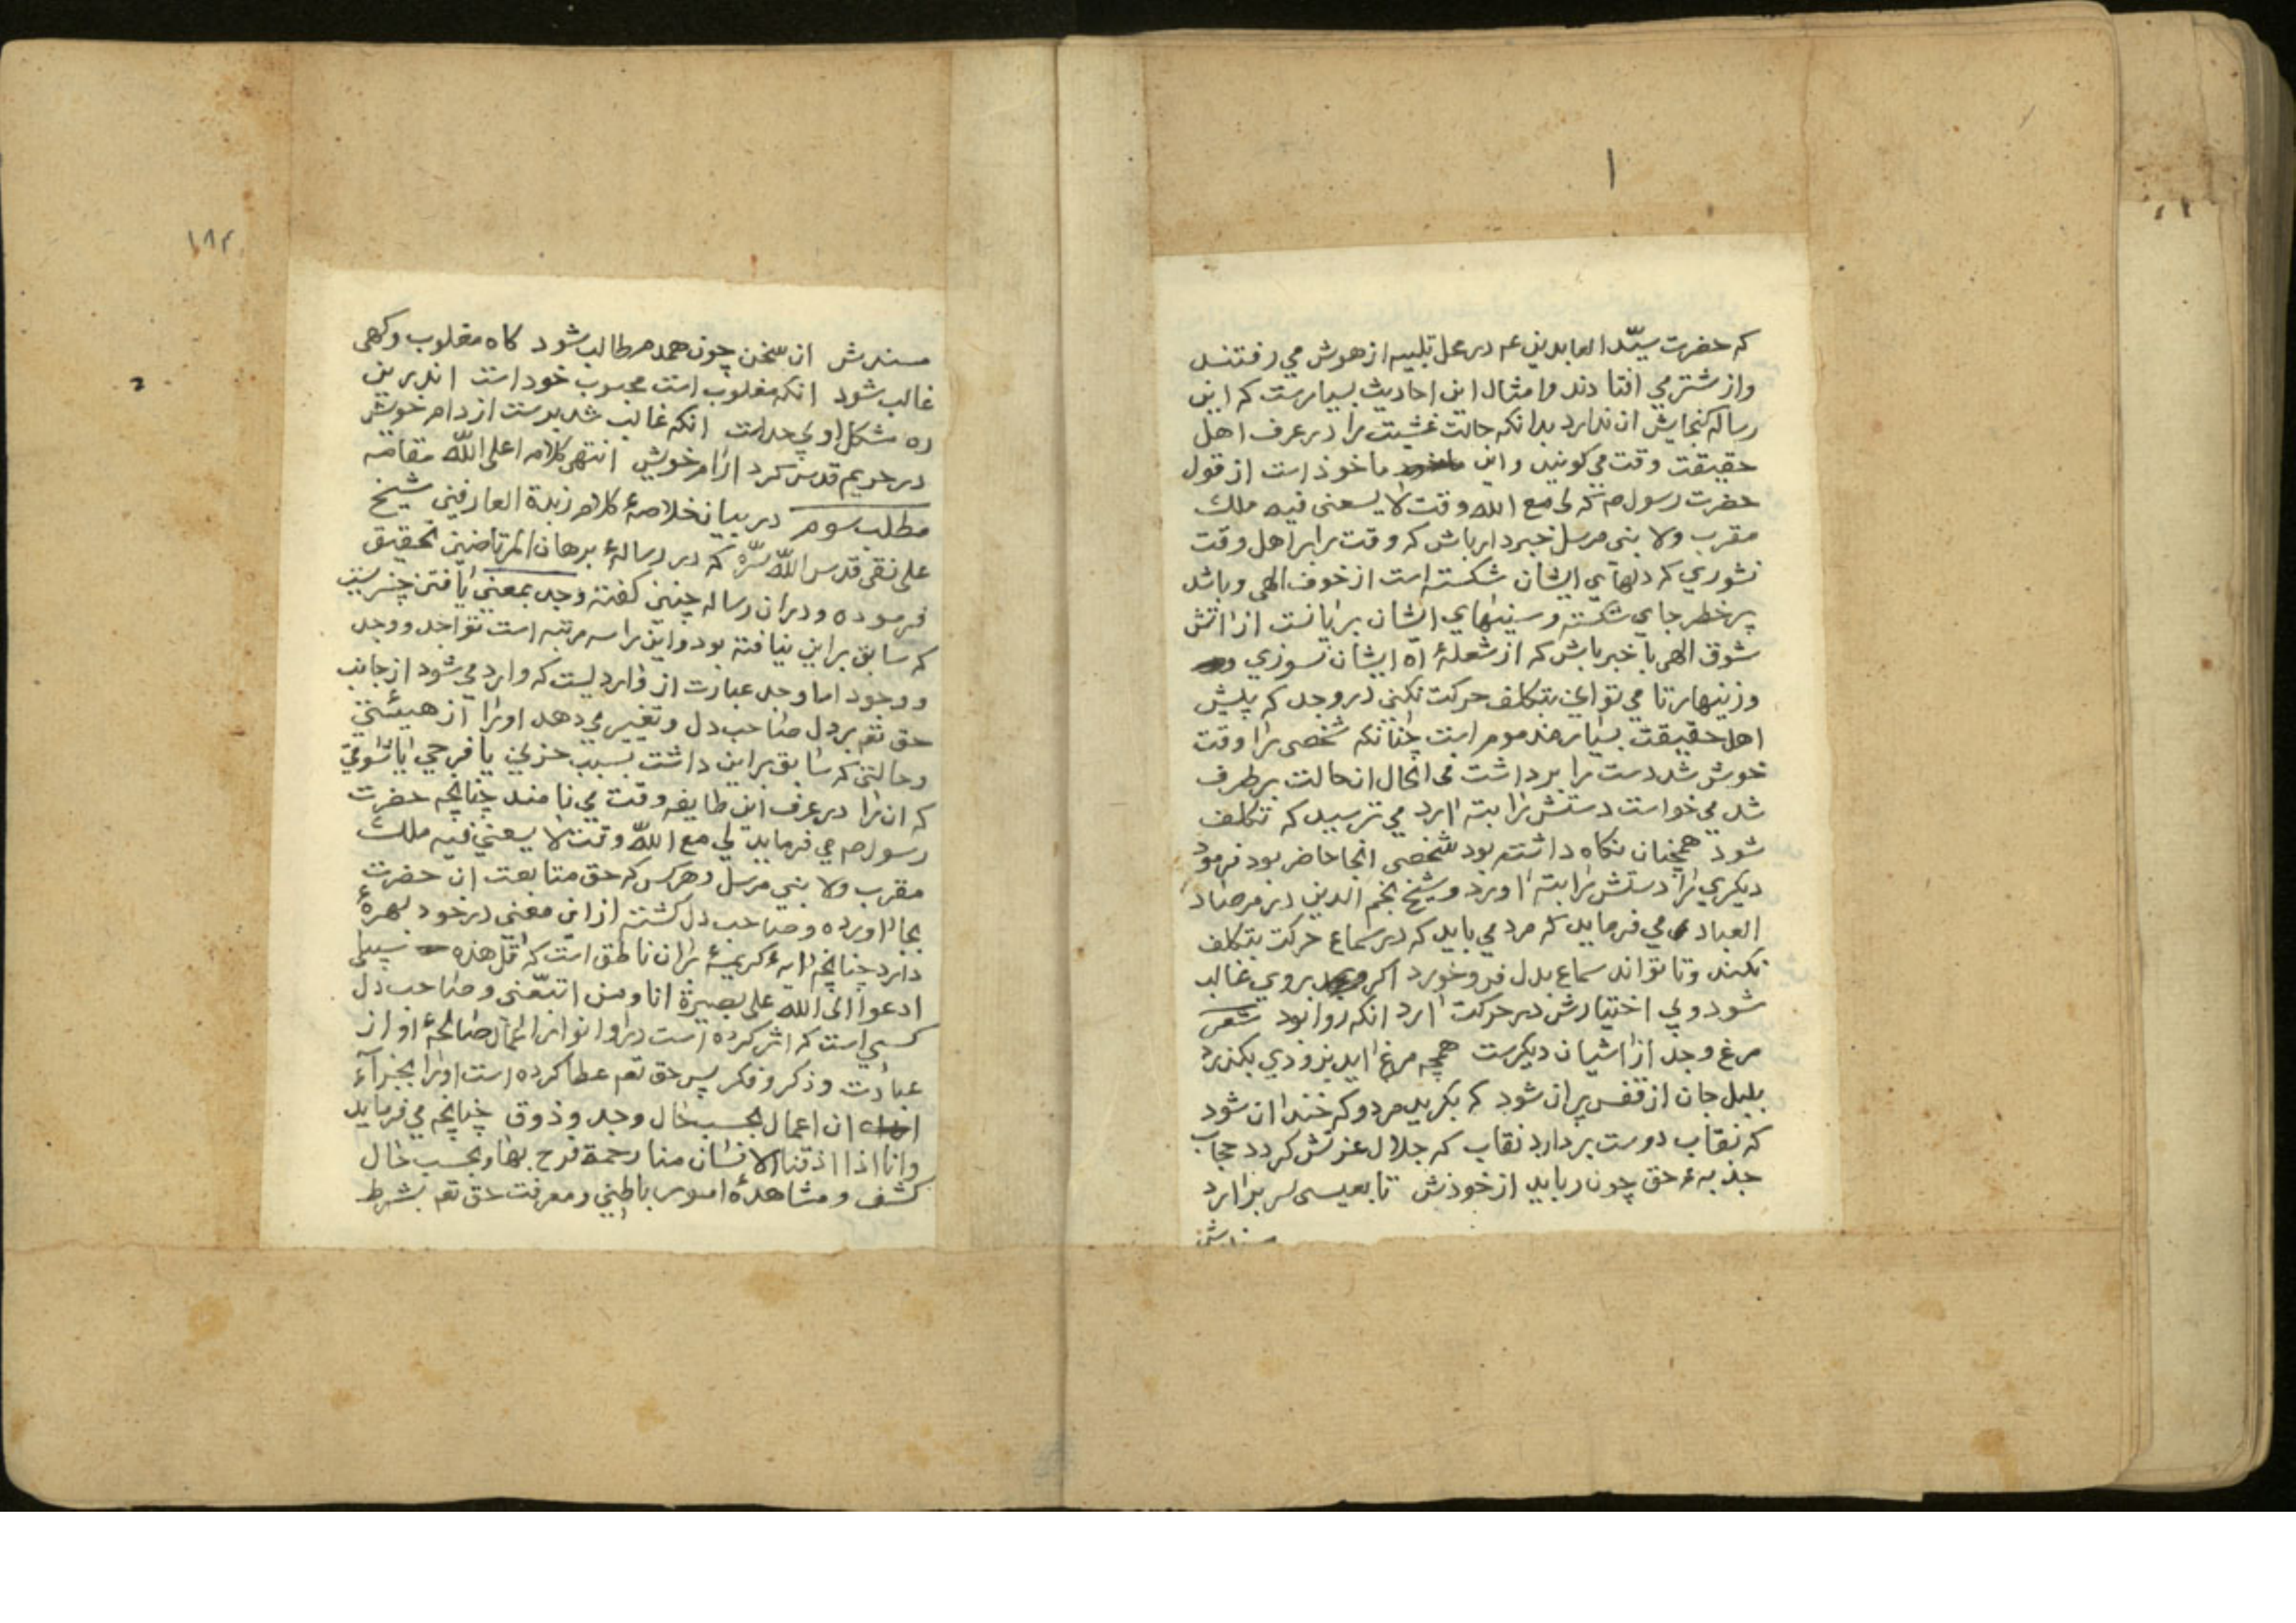 ۱
که حضرت سیّد العابدین عم در محل تلبیه از هوش می رفتند
واز شتر می افتادند وامثال این احادیث بسیارست که این
رساله کنجایش ان ندارد بدانکه حالت غشیت را در عرف اهل
حقیقت وقت می کویند واین ماخوذ است از قول
حضرت رسول صم که لی مع الله وقت لا یسعنی فیه ملك
مقرب ولا بنی مرسل خبردار باش که وقت را بر اهل وقت
نشوری که دلهای ایشان شکسته است از خوف الهی وباشد
پر خطر جای شکسته وسینهای ایشان بریانست از اتش
شوق الهی با خبر باش که از شعلهٔ اه ایشان نسوزی
وزینهار تا می توانی بتکلف حرکت نکنی در وجد که پیش
اهل حقیقت بسیار مذموم است چنانکه شخصی را وقت
خوش شد دست را برداشت فی الحال انحالت بر طرف
شد می خواست دستش را بته ارد می ترسید که تکلف
شود همچنان نکاه داشته بود شخصی انجا حاضر بود فرمود
دیکری را دستش را بته اورد وشیخ نجم الدین در مرصاد
العباد می فرماید که مرد می باید که در سماع حرکت بتکلف
نکند وتا تواند سماع بدل فرو خورد اکر بروی غالب
شود وبی اختیارش در حرکت ارد انکه روا بود شعر
مرغ وجد از اشیان دیکرست همچه مرغ اید بزودی بکذرد
بلبل جان از قفس پران شود که بکرید مرد وکه خندان شود
که نقاب دوست بردارد نقاب که جلال عزتش کردد حجاب
جذبهء حق چون رباید از خودش تا بعیسی سر برارد
مسندش
۱۸۴
مسندش ان سخن چون همدم طالب شود کاه مغلوب وکهی
غالب شود انکه مغلوب است محبوب خود است اندرین
ره مشکل او بی حداست انکه غالب شد برست از دام خویش
در حریم قدس کرد ارام خویش انتهی کلامه اعلی اللّٰه مقامه
مطلب سوم در بیان خلاصهٔ کلام زبدة العارفین شیخ
علی نقی قدس اللّٰه سرّه که در رسالهٔ برهان المرتاضین تحقیق
فرموده ودران رساله چنین کفته وجد بمعنی یافتن چیزیست
که سابق براین نیافته بود واین را سه مرتبه است تواجد ووجد
ووجود اما وجد عبارت از واردیست که وارد می شود از جانب
حق تعم بر دل صاحب دل وتغییر می دهد اورا از هیئتی
وحالتی که سابق براین داشت بسبب حزنی یا فرحی یا شوقی
که ان را در عرف این طایفه وقت می نامند چنانچه حضرت
رسول صم می فرماید لی مع اللّٰه وقت لا یسعنی فیه ملك
مقرب ولا بنی مرسل وهرکس که حق متابعت ان حضرت
بجا اورده وصاحب دل کشته از این معنی در خود بهرهٔ
دارد چنانچه ایهٔ کریمهٔ بران ناطق است که قل هذه سبیلی
ادعوا الی الله علی بصیرة انا ومن اتبعنی وصاحب دل
کسی است که اثر کرده است در او انوار اعمال صالحهٔ او از
عبادت وذکر وفکر پس حق تعم عطا کرده است اورا بجزآء
ان اعمال بحسب حال وجد وذوق چنانچه می فرماید
وانا اذا اذقنا الانسان منا رحمة فرح بها وبحسب حال
کشف ومشاهدهٔ امور باطنی ومعرفت حق تعم بشرط